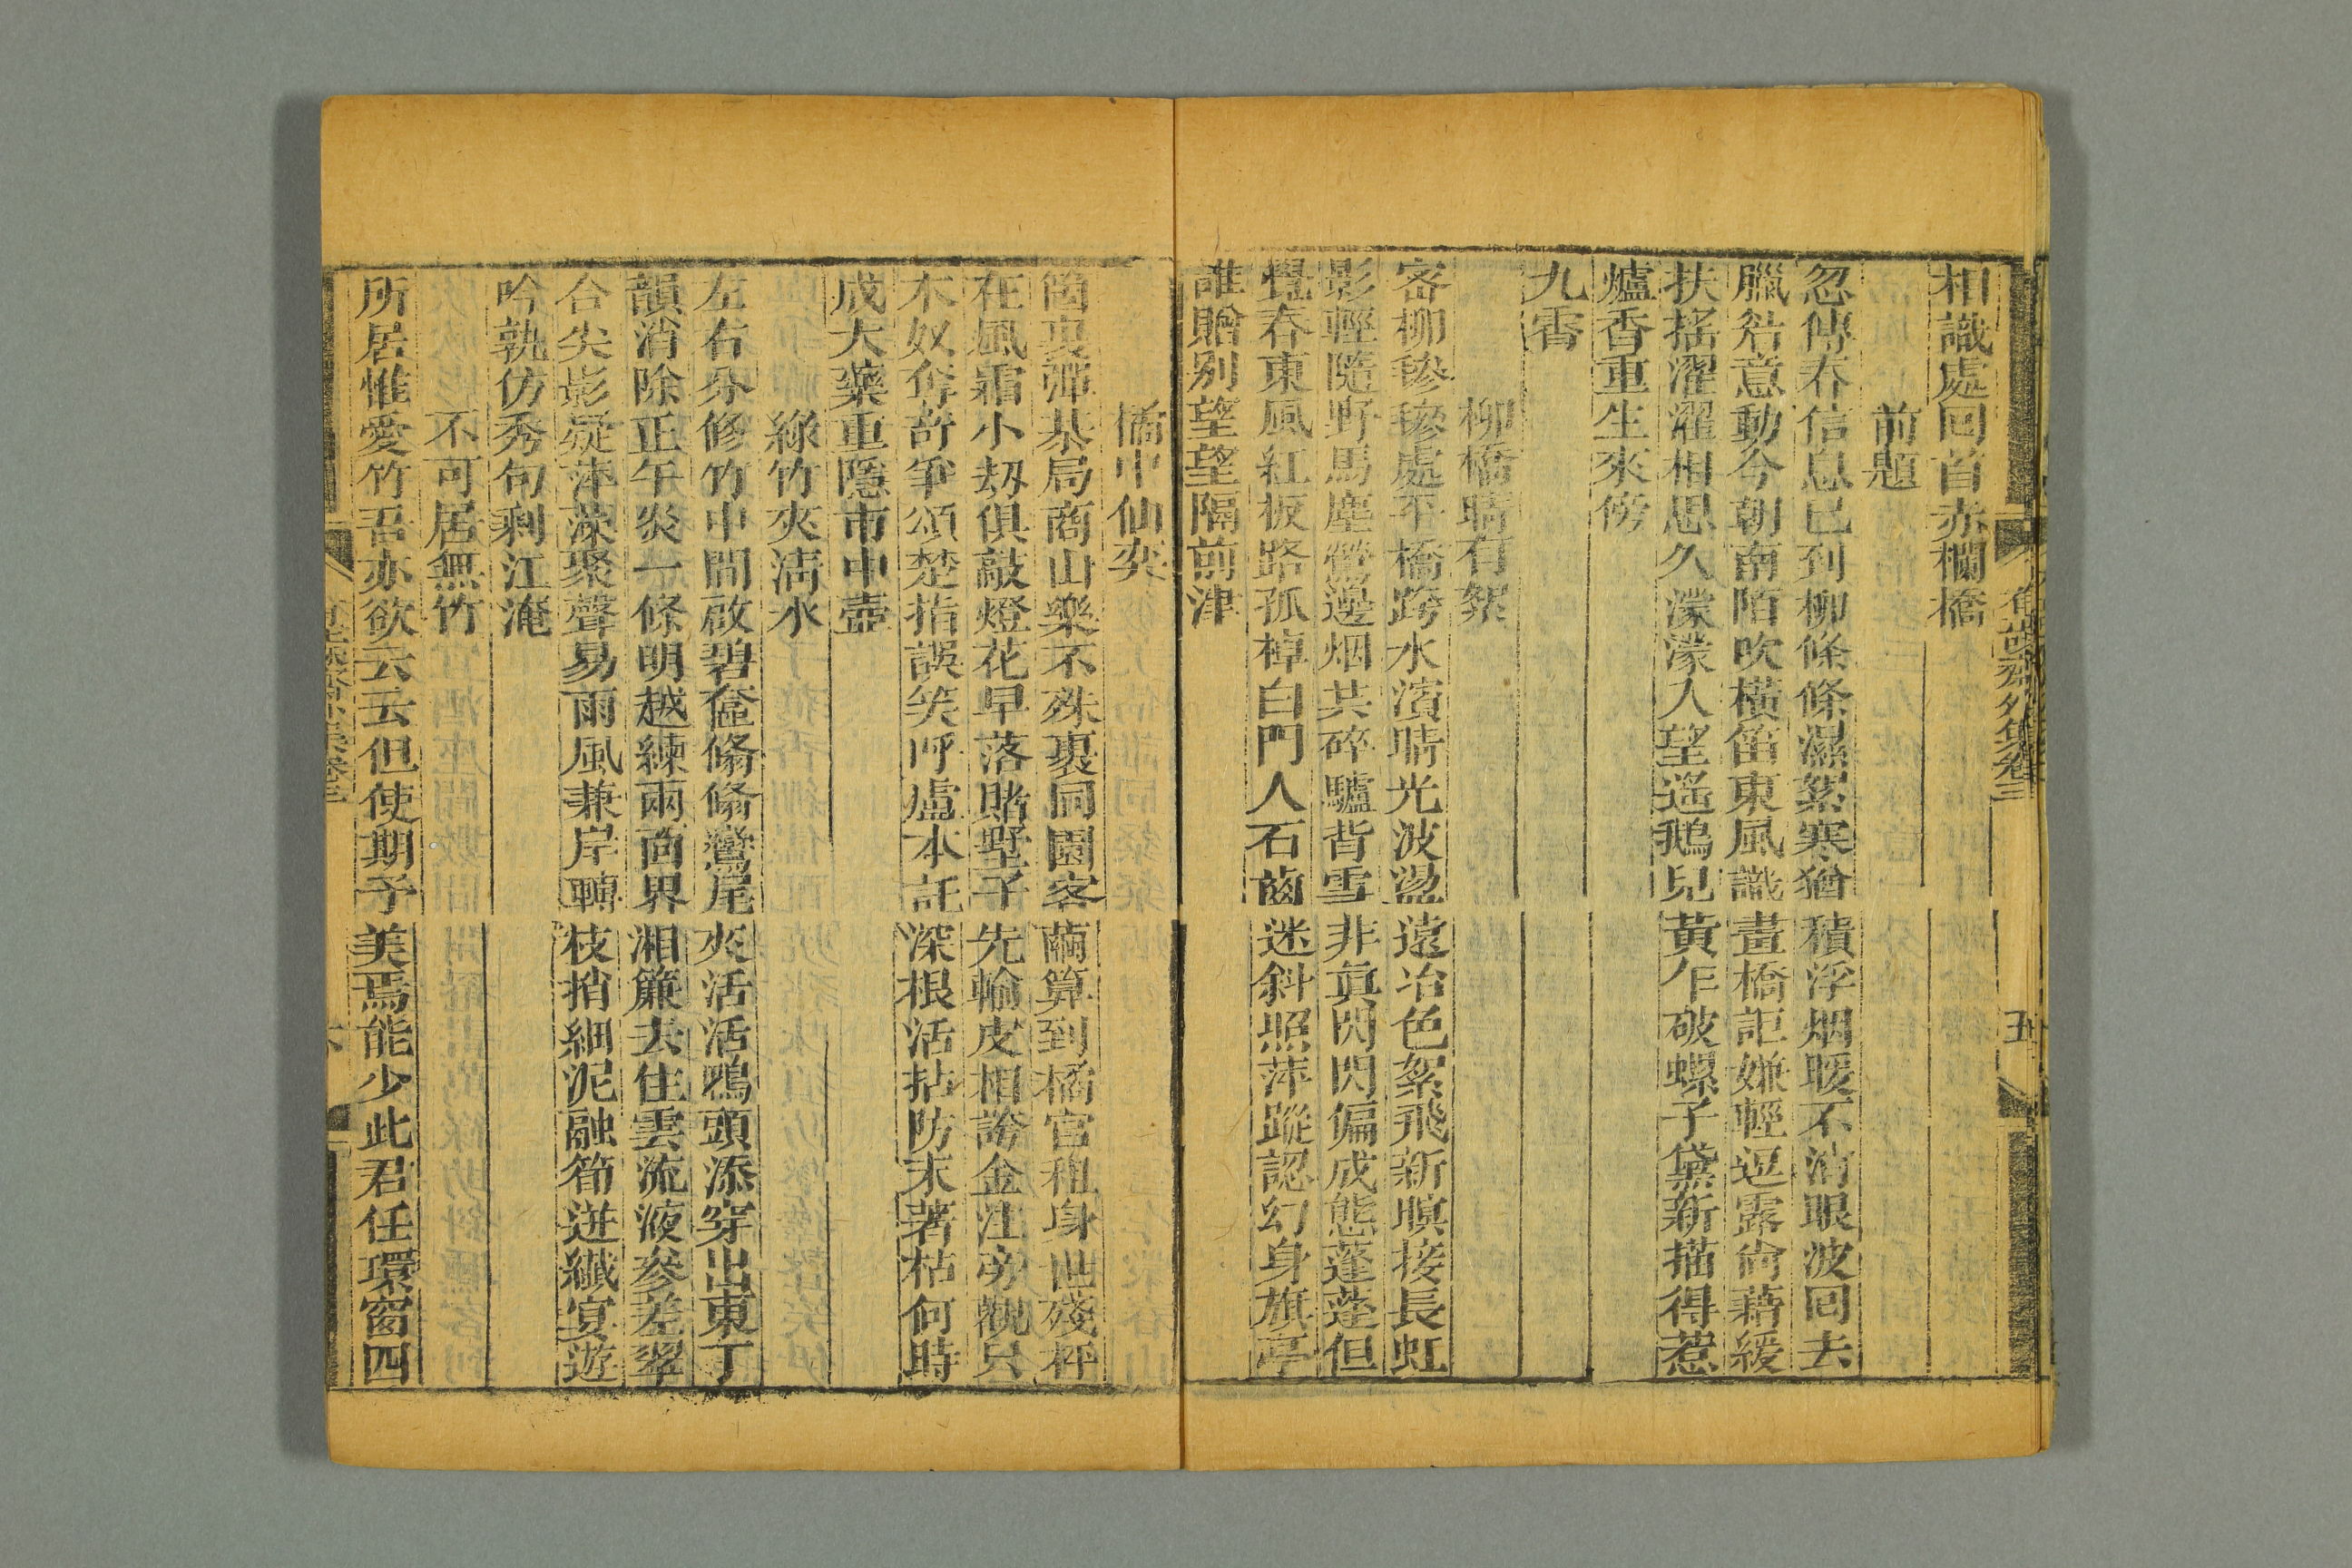 相識處回首赤欄橋
前題
忽傳春信息已到柳條條濕絮寒猶積浮烟暖不消眼波回去
臘眷意動今朝南陌吹橫笛東風識畫橋詎嫌輕逗露尙藉緩
扶搖濯濯相思久濛濛入望遙鵝兒黃乍破螺子黛新描得惹
爐香重生來傍
九霄
柳橋晴有絮
密柳毿毿處平橋跨水濱晴光波盪遠冶色絮飛新暝接長虹
影輕隨野馬塵鶯邊烟共碎驢背雪非真閃閃偏成態蓬蓬但
覺春東風紅板路孤棹白門人石齒迷斜照萍蹤認幻身旗亭
誰贈別望望隔前津
橘中仙奕
箇裏彈棊局商山樂不殊裏同園客繭算到橘官租身世殘枰
在風霜小刼俱敲燈花早落賭墅子先輸皮相誇金注旁觀只
木奴奪奇爭頌楚指誤笑呼盧本託深根活拈防末著枯何時
成大藥重隱市中壺
綠竹夾淸水
左右分修竹中間啟碧奩翛翛鸞尾夾活活鴨頭添穿出東丁
韻消除正午炎一條明越練兩面界湘簾去住雲流液參差翠
合尖影疑萍藻聚聲易雨風兼岸轉枝捎細泥融筍迸纖宴遊
吟孰仿秀句剩江淹
不可居無竹
所居惟愛竹吾亦欲云云但使期予美焉能少此君任環窗四